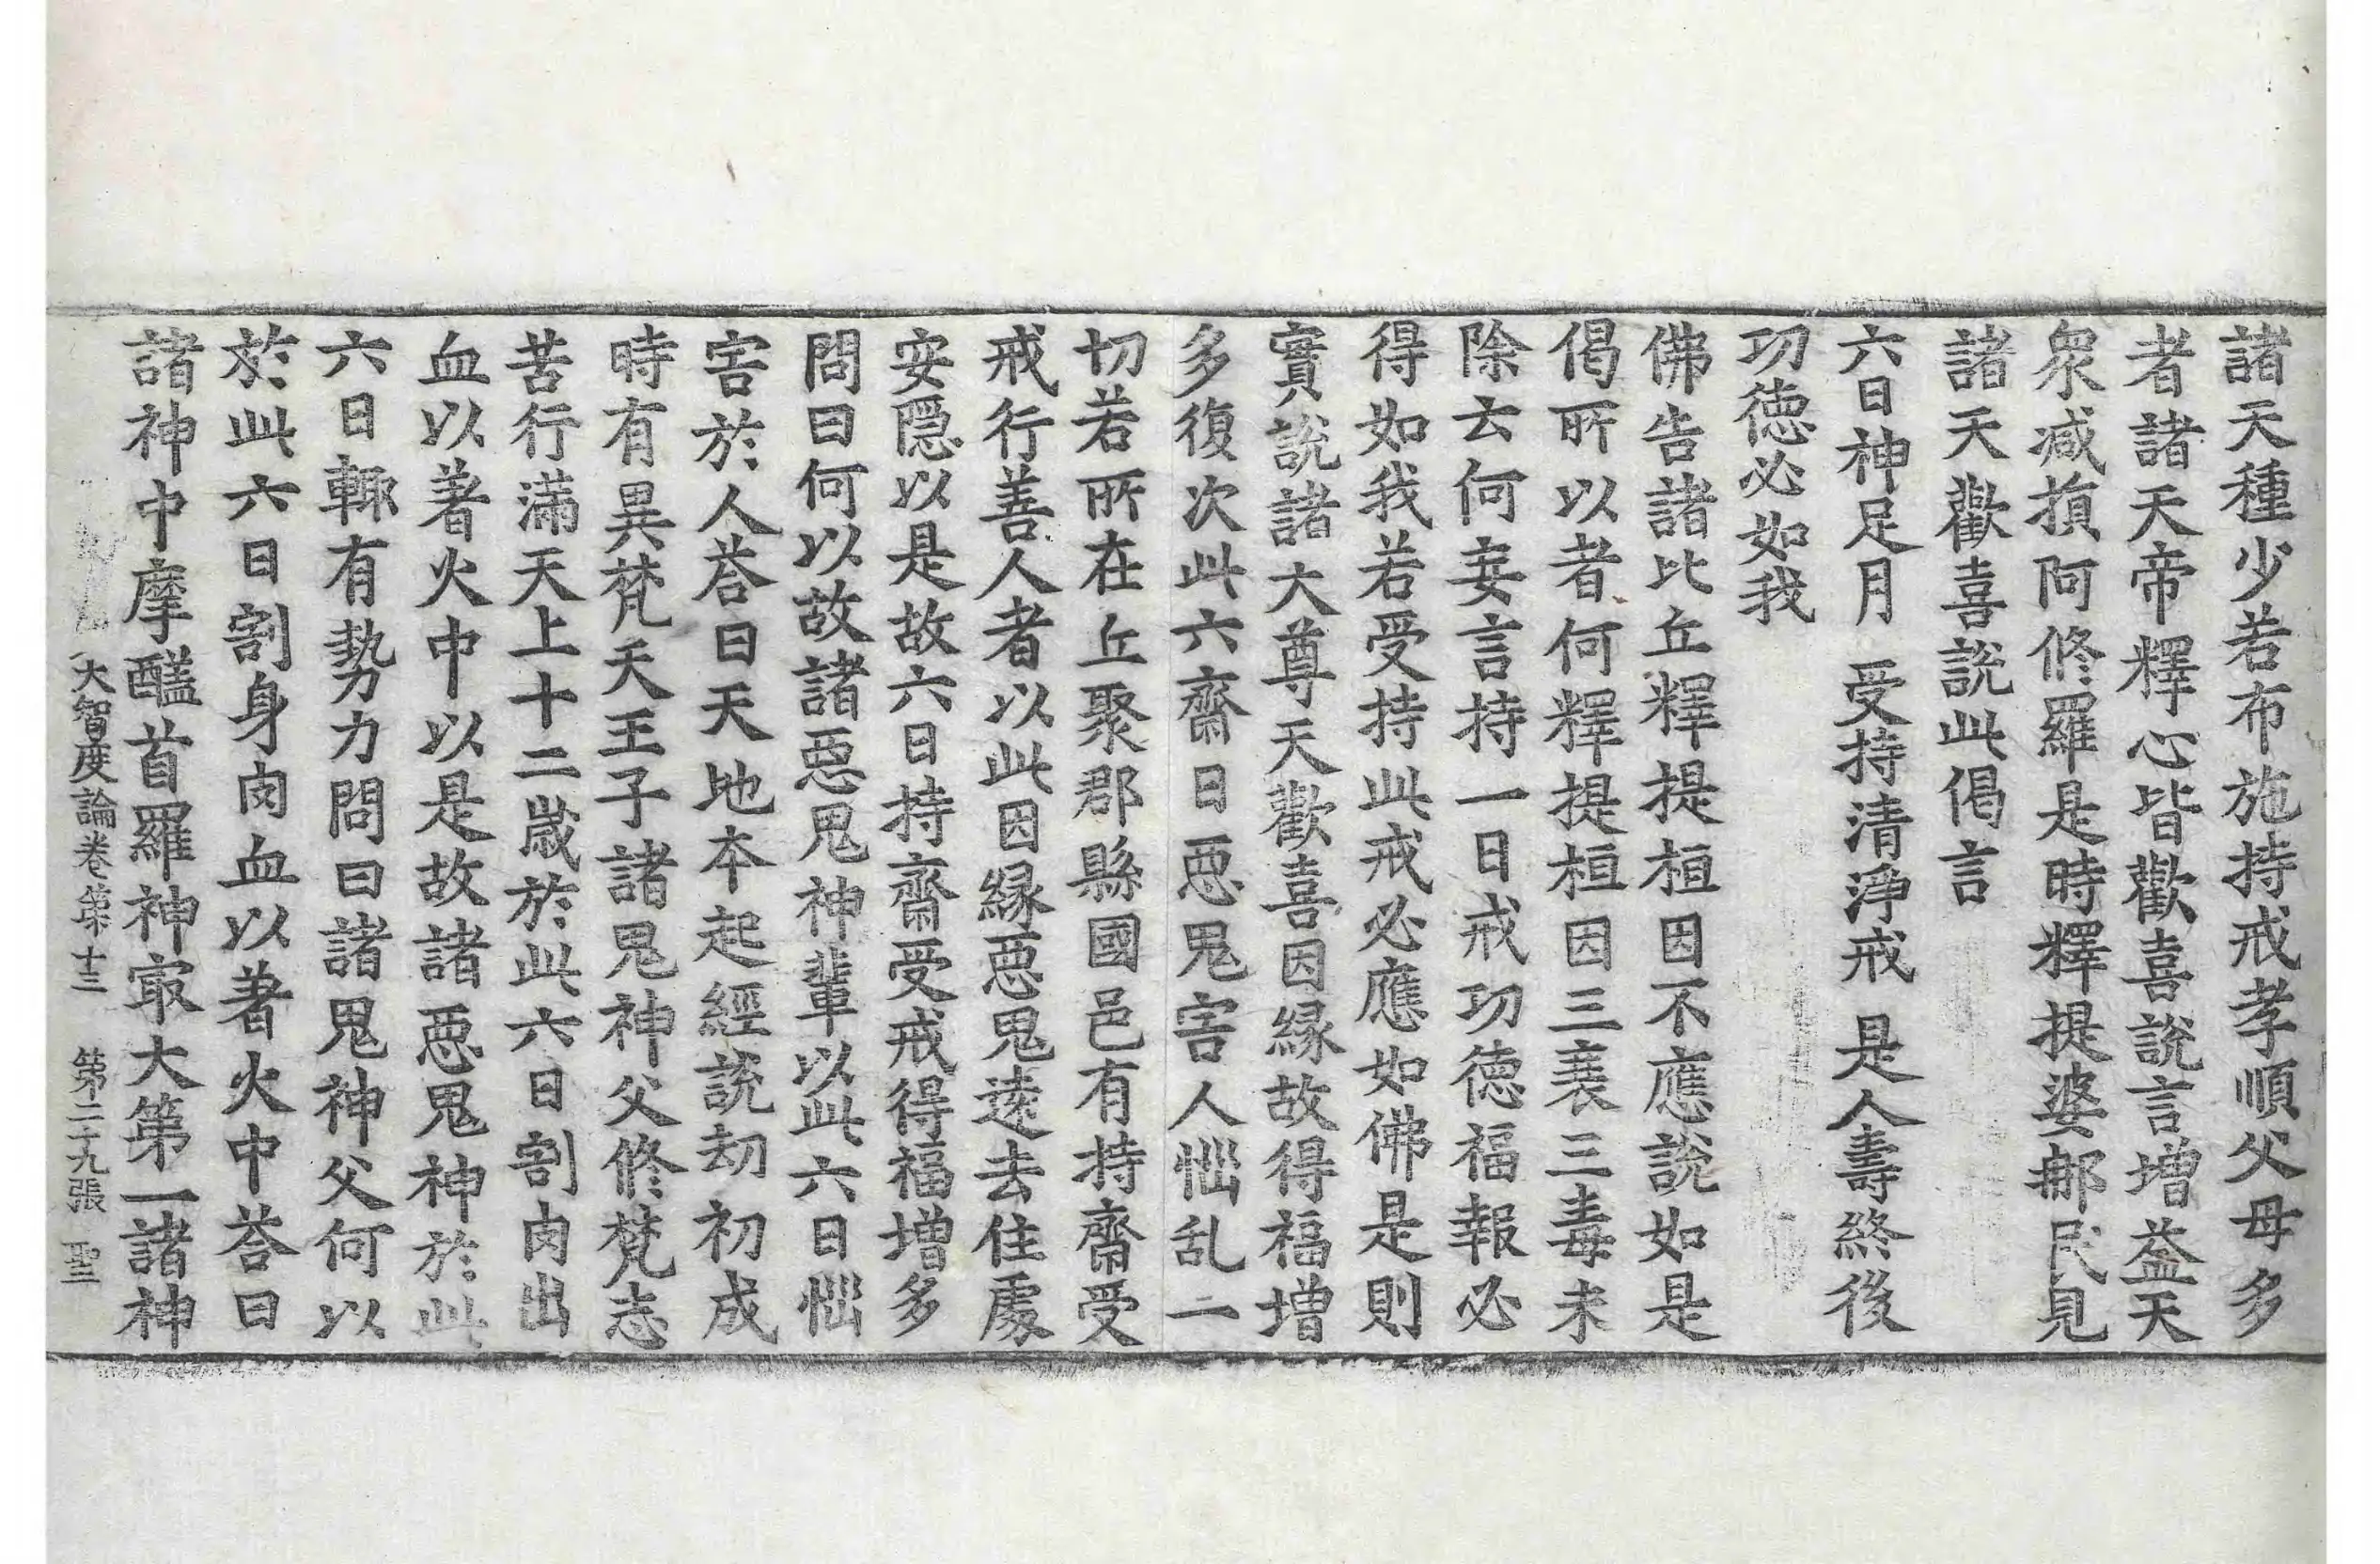 諸天種少若布施持戒孝順父母多
者諸天帝釋心皆歡喜說言增益天
衆减損阿修羅是時釋提婆那民見
諸天歡喜說此偈言
六日神足月　受持清淨戒　是人壽終後
功德必如我
佛告諸比丘釋提桓因不應說如是
偈所以者何釋提桓因三衰三毒未
除云何妄言持一日戒功德福報必
得如我若受持此戒必應如佛是則
實說諸大尊天歡喜因緣故得福增
多復次此六齋日惡鬼害人惱乱一
切若所在丘聚郡縣國邑有持齋受
戒行善人者以此因緣惡鬼遠去住處
安隱以是故六日持齋受戒得福增多
問曰何以故諸惡鬼神輩以此六日惱
害於人荅曰天地本起經說劫初成
時有異梵天王子諸鬼神父修梵志
苦行滿天上十二歲於此六日割肉出
血以著火中以是故諸惡鬼神於此
六日輒有勢力問曰諸鬼神父何以
於此六日割身肉血以著火中荅曰
諸神中摩醯首羅神㝡大第一諸神
大智度論卷第十三　第二十九張　聖